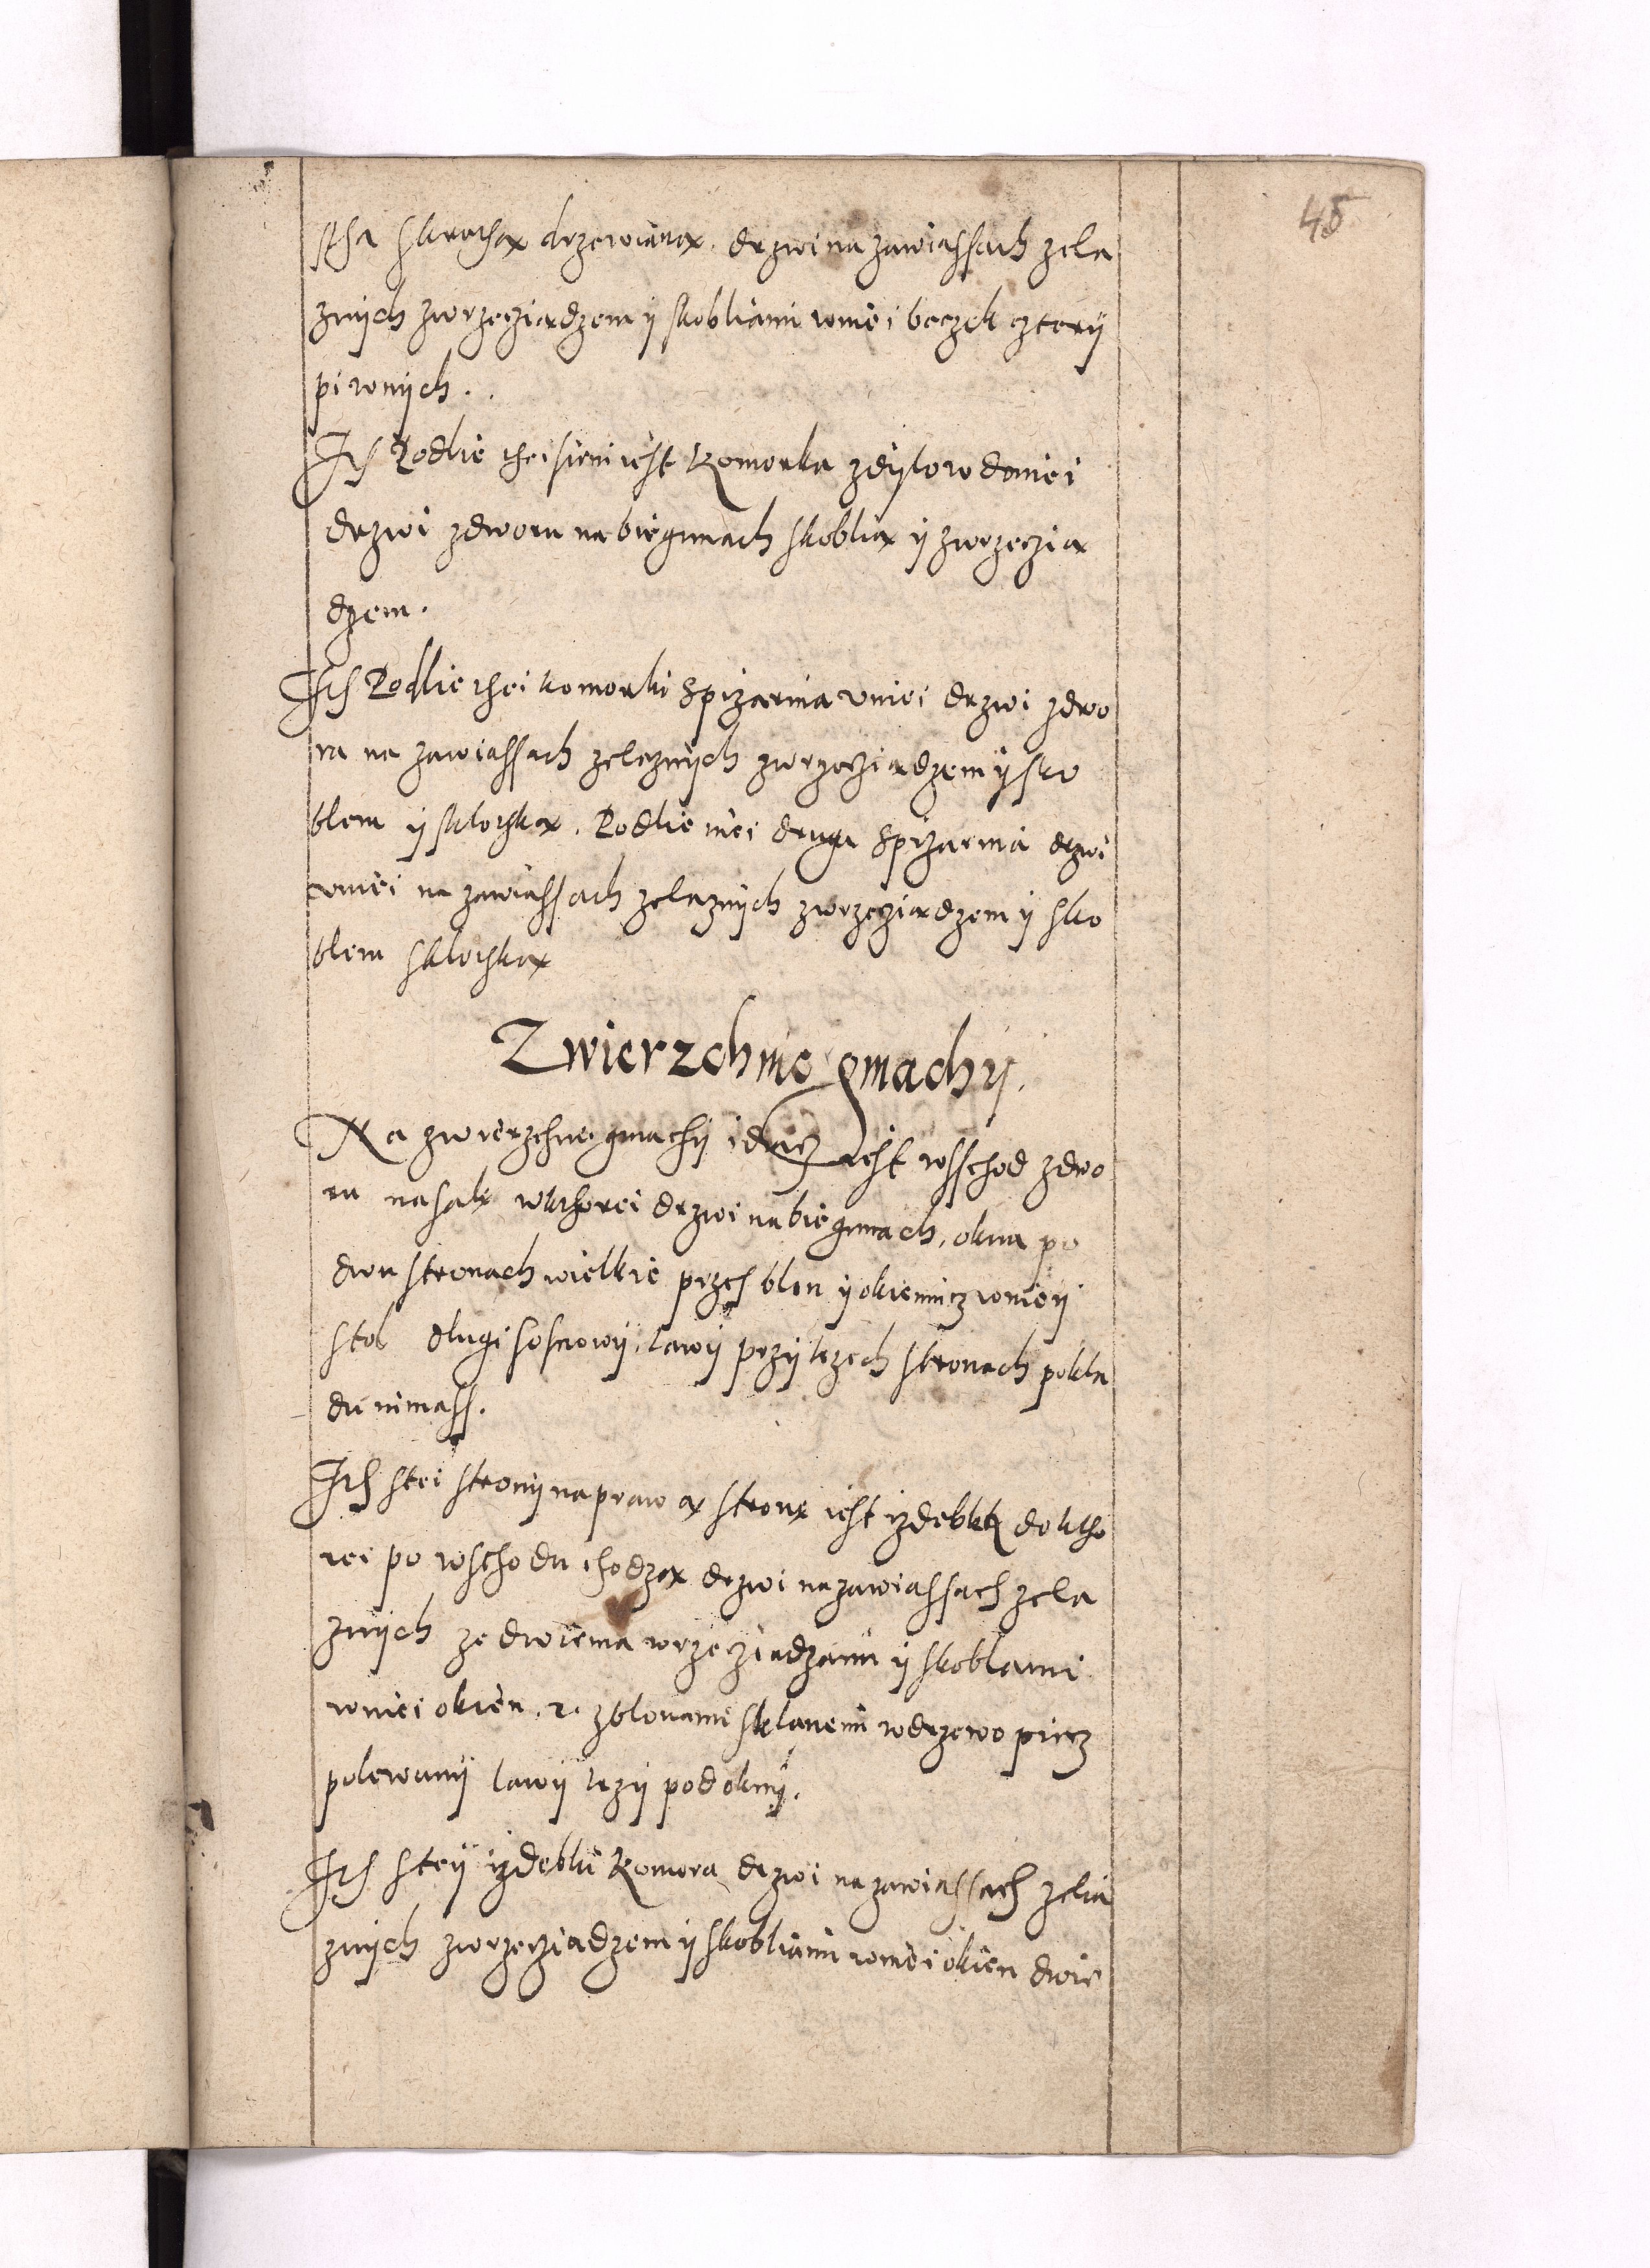 45
stha skrathą drzewianą. drzwi na zawiassach zela
znÿch zwrzecziądzem ÿ skobliami wniei beczek czterÿ
piwnÿch.
Its Podlie thei sieni iest Komorka zdÿlow doniei
drzwi zdworu na biegunach skoblią ÿ zwrzeczią
dzem.
Its Podlie thei komorki Spizarnia vniei drzwi zdwo
ra na zawiassach zelaznÿch zwrzecziądzem ÿ sko
blem ÿ sklotką. Podlie niei druga Spizarnia drzwi
wniei na zawiassach zelaznÿch zwrzecziądzem ÿ sko
blem sklotką
Zwierzchnie gmachÿ.
Na zwierzchne gmachÿ idącz iest wsschod zdwo
ru na salę wkthorei drzwi na biegunach, okna po
dwu stronach wielkie przes blon ÿ okiennicz wnieÿ
stol dlugi sosnowÿ, lawÿ przÿ trzech stronach pokla
du nimass.
Its stei stronÿ na prawą stronę iest izdebkę do ktho
rei po wschodu chodzą drzwi na zawiassach zela
znÿch ze dwiema wrzecziądzami ÿ skoblami
wniei okien. 2. zblonami sklanemi wdrzewo piecz
polewanÿ lawÿ trzÿ pod oknÿ.
Its steÿ izdebki Komora drzwi na zawiassach zelia
znÿch zwrzecziądzem ÿ skobliami wniei okien dwie